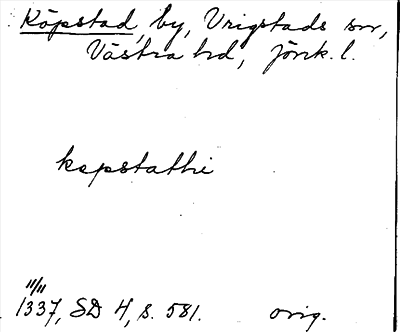 Köpstad, by, Vrigstads sn,
Västra hd, Jönk. l.
kapstathe
11/11
1337, SD 4, s. 581. orig.